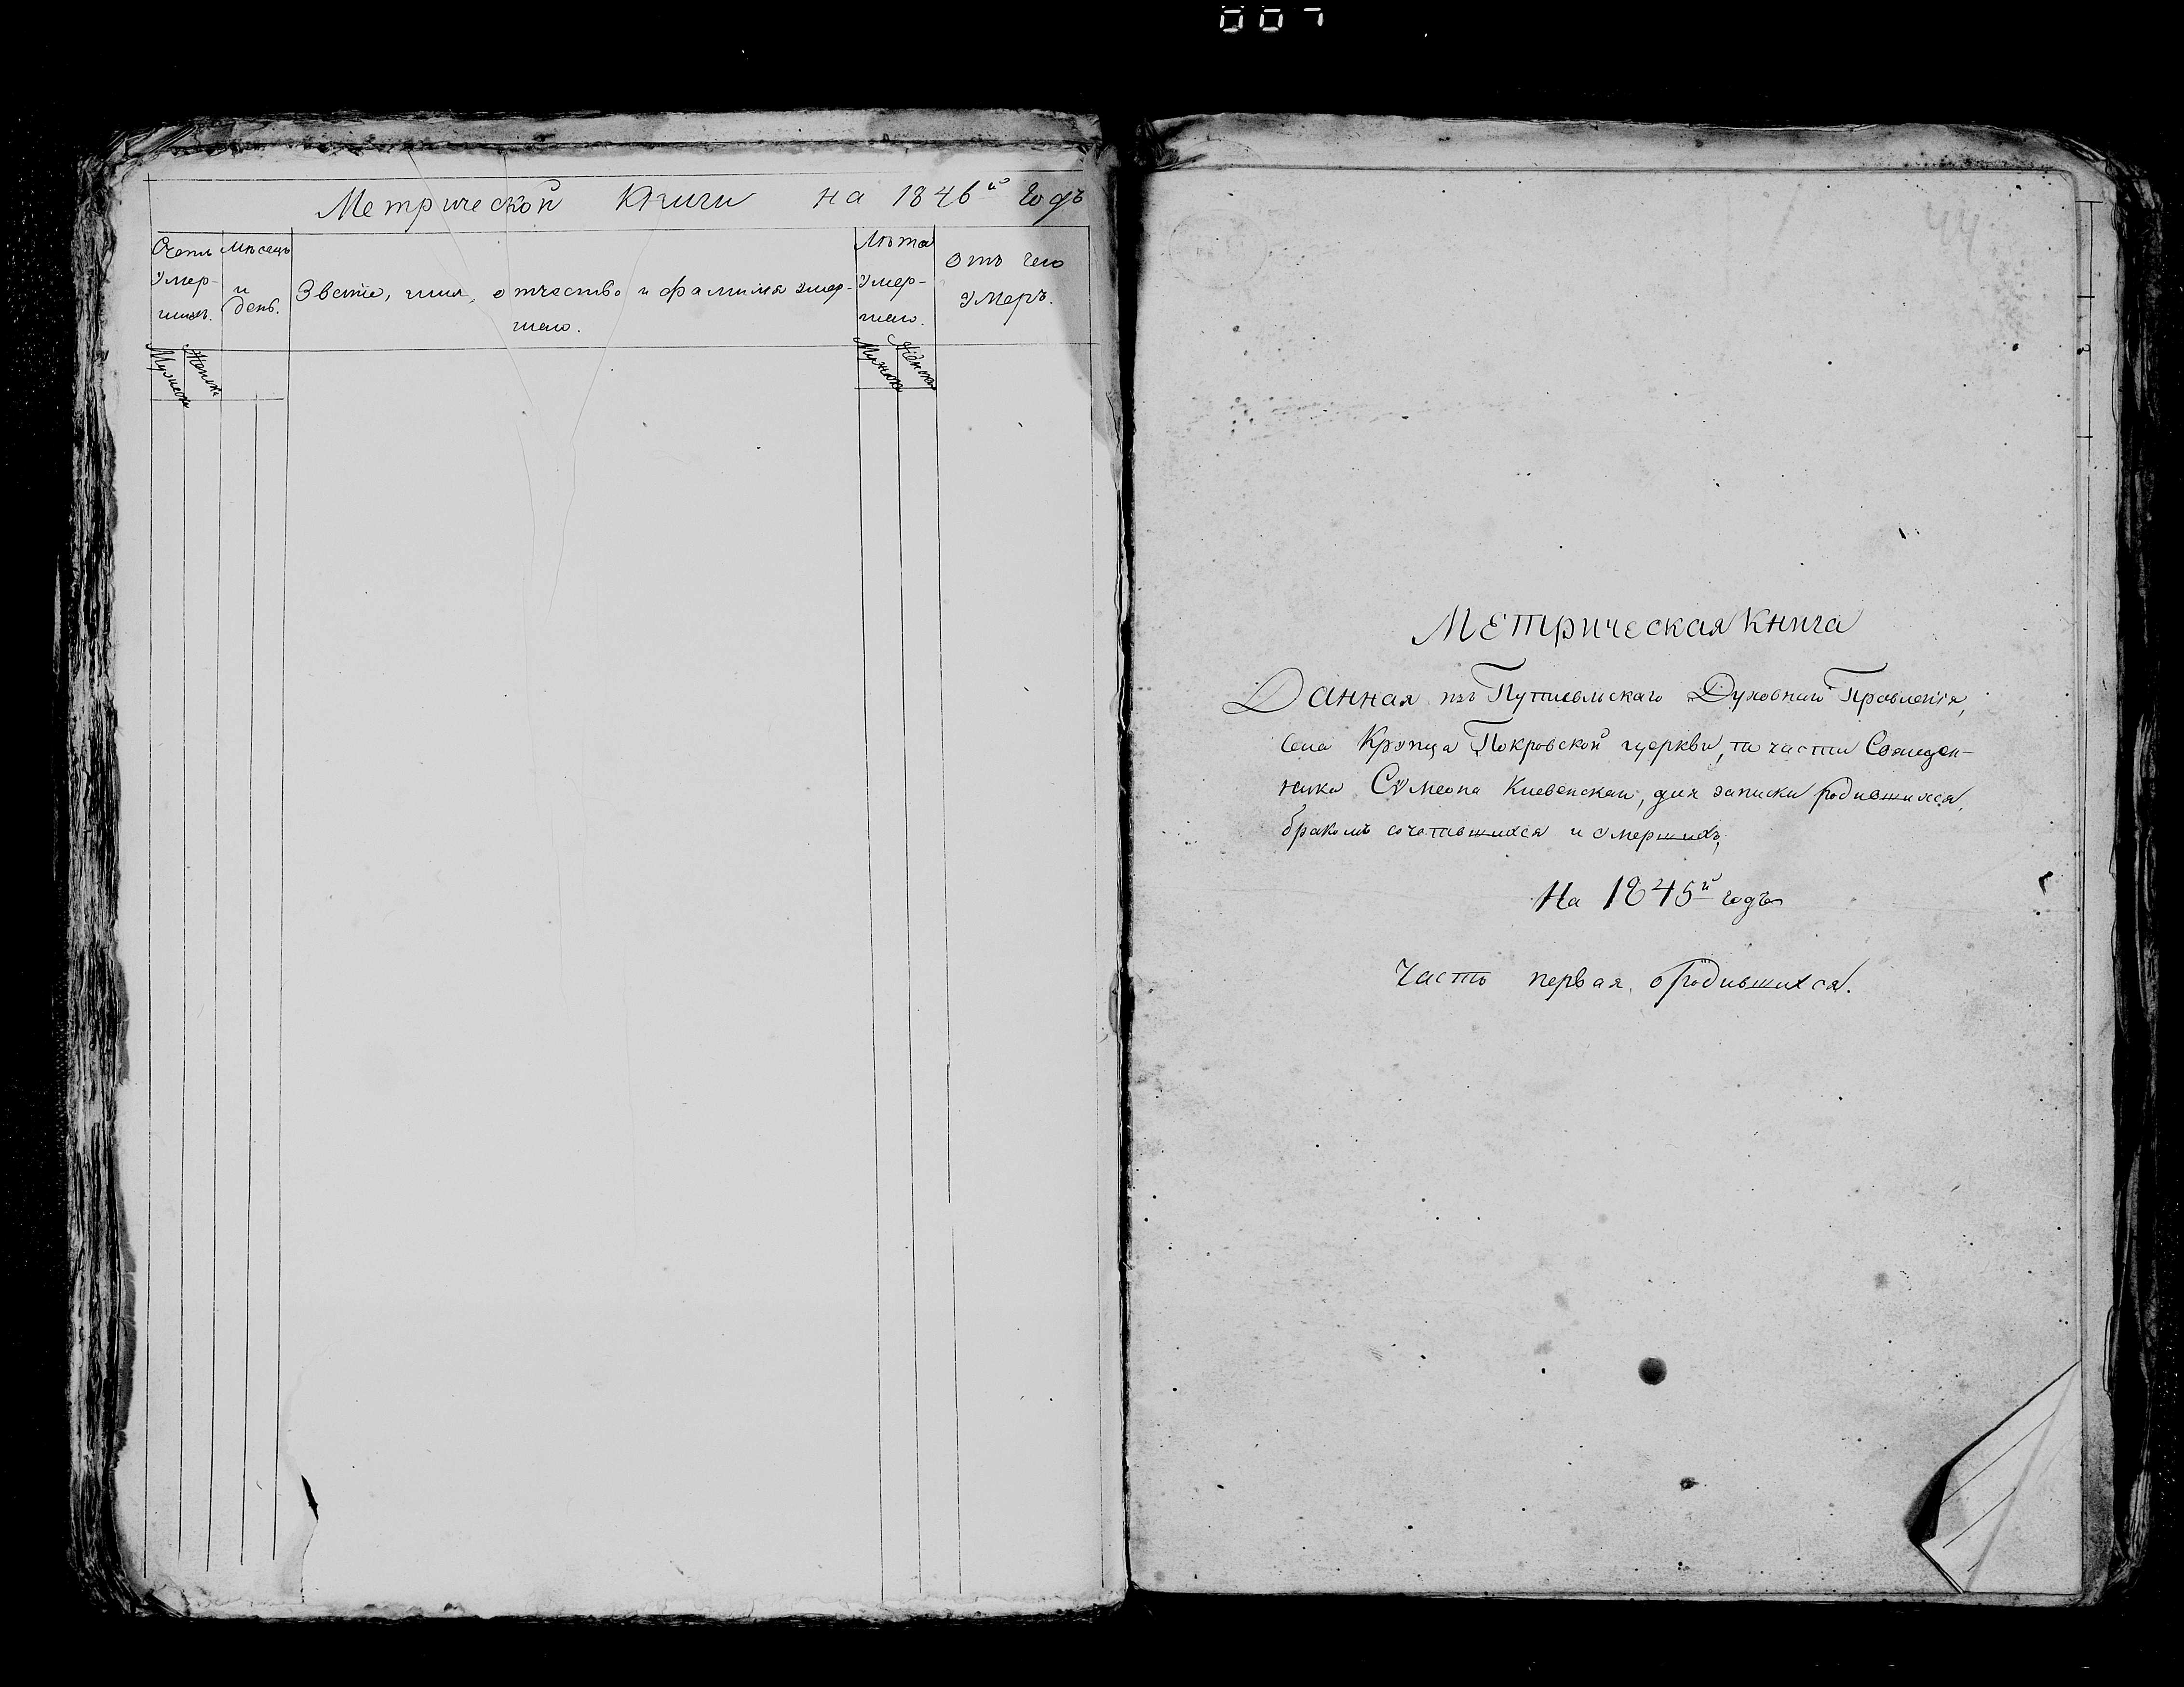 007
Метрической Книги на 1846й годъ
Счетъ умер-шихъ.
Мужеска
Женска
Мѣсяцъ и день.
Званіе, имя, отчество и фамилія умер-
шаго.
Лѣта умер-шаго.
Мужска
Женска
Отъ чего
умеръ.
44
Метрическая Книга
Данная изъ Путивльскаго Духовнаго Правленія,
села Крупца Покровской церкви, въ части Священ-
ника Сѵмеона Киевскаго, для записки родившихся,
бракомъ сочетавшихся и умершихъ,
На 1845й годъ
Часть первая, о родившихся.